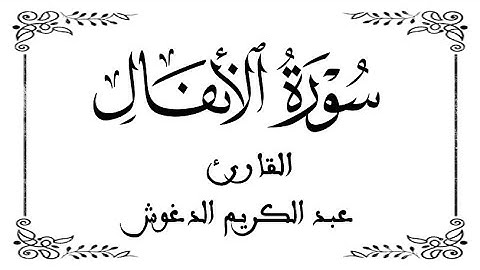 سُورَةُ ٱلْأَنفَالِ
القارئ
عبد الكريم الدغوش